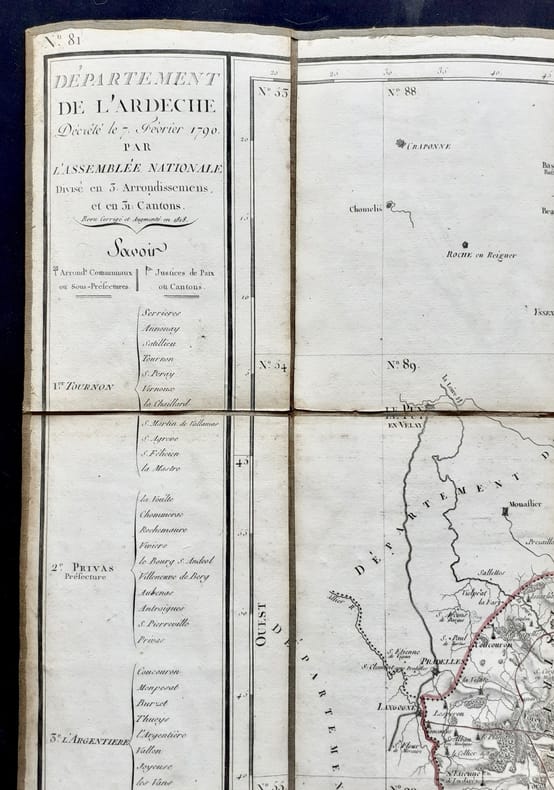 N.º 81
DÉPARTEMENT
DE L'ARDECHE
Décrété le 7. Février 1790.
PAR
L'ASSEMBLÉE NATIONALE
Divisé en 3. Arrondissemens,
et en 31. Cantons.
Revu Corrigé et Augmenté en 1818.
Savoir
Arrond.ˢ Communaux
ou Sous-Préfectures.
Justices de Paix
ou Cantons.
1.ᵉʳ TOURNON
Serrieres
Annonay
Satillieu
Tournon
S. Peray
Vernoux
la Chaillard
S. Martin de Vallamas
S. Agreve
S. Félicien
la Mastre
2.ᵉ PRIVAS
Préfecture
la Voulte
Chomerac
Rochemaure
Viviers
le Bourg S. Andeol
Villeneuve de Berg
Aubenas
Antraigues
S. Pierreville
Privas
3.ᵉ L'ARGENTIERE
Coucouron
Monpezat
Burzet
Thueys
l'Argentière
Vallon
Joyeuse
les Vans
N.º 53
N.º 88
25
25
30
35
40
20
15
10
5
45
CRAPONNE
Chomelis
ROCHE en Reigner
N.º 54
N.º 89.
la Loire R.
LE PUY
EN VELAY
DÉPARTEMENT D
Monastier
Sallettes
Allier R.
OUEST
DÉPARTEMEN
S. Etienne
PRADELLES
Coucouron
LANGOGNE
Lesperon
le Cellier
S. Etienne